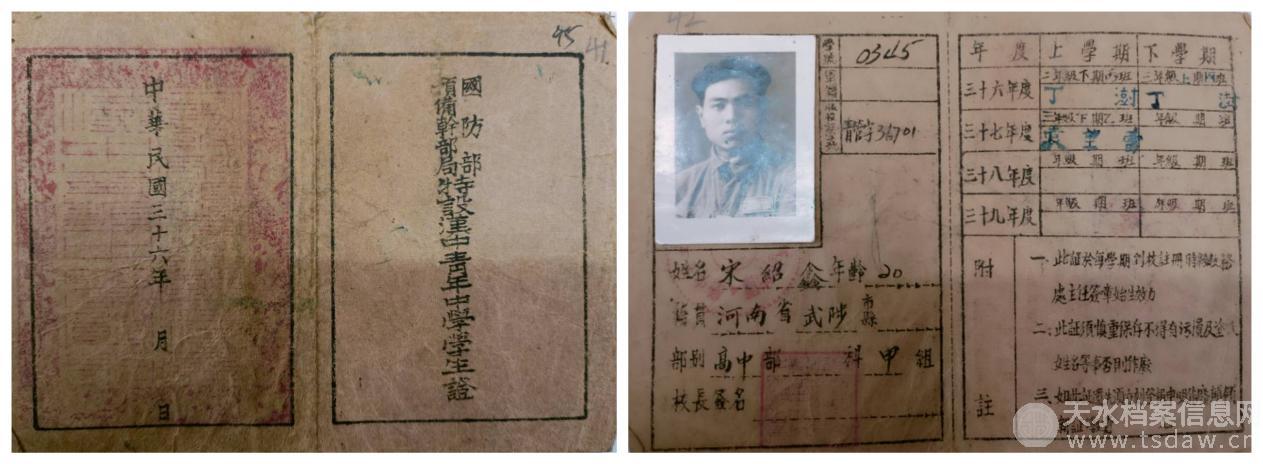 45
41
國防部
預備幹部局特設漢中青年中學學生證
中華民國三十六年 月 日
42
學號 0345
青管字34701
姓名 宋紹鑫 年齡 20
籍貫 河南省 武陟 市縣
部別 高中部 科 甲 組
校長簽名
年度 上學期 下學期
三十六年度 二年級下期丙班 三年級上期丙班
丁澍 丁澍
三十七年度 三年級下期乙班 年級 期 班
三十八年度 年級 期 班 年級 期 班
三十九年度 年級 期 班 年級 期 班
附註
一、此證於每學期到校註冊時
處主任簽章始生效力
二、此証須慎重保存不得有污損及塗
姓名等事否則作廢
三、如此証遺失須
天水档案信息网
www.tsdaw.cn